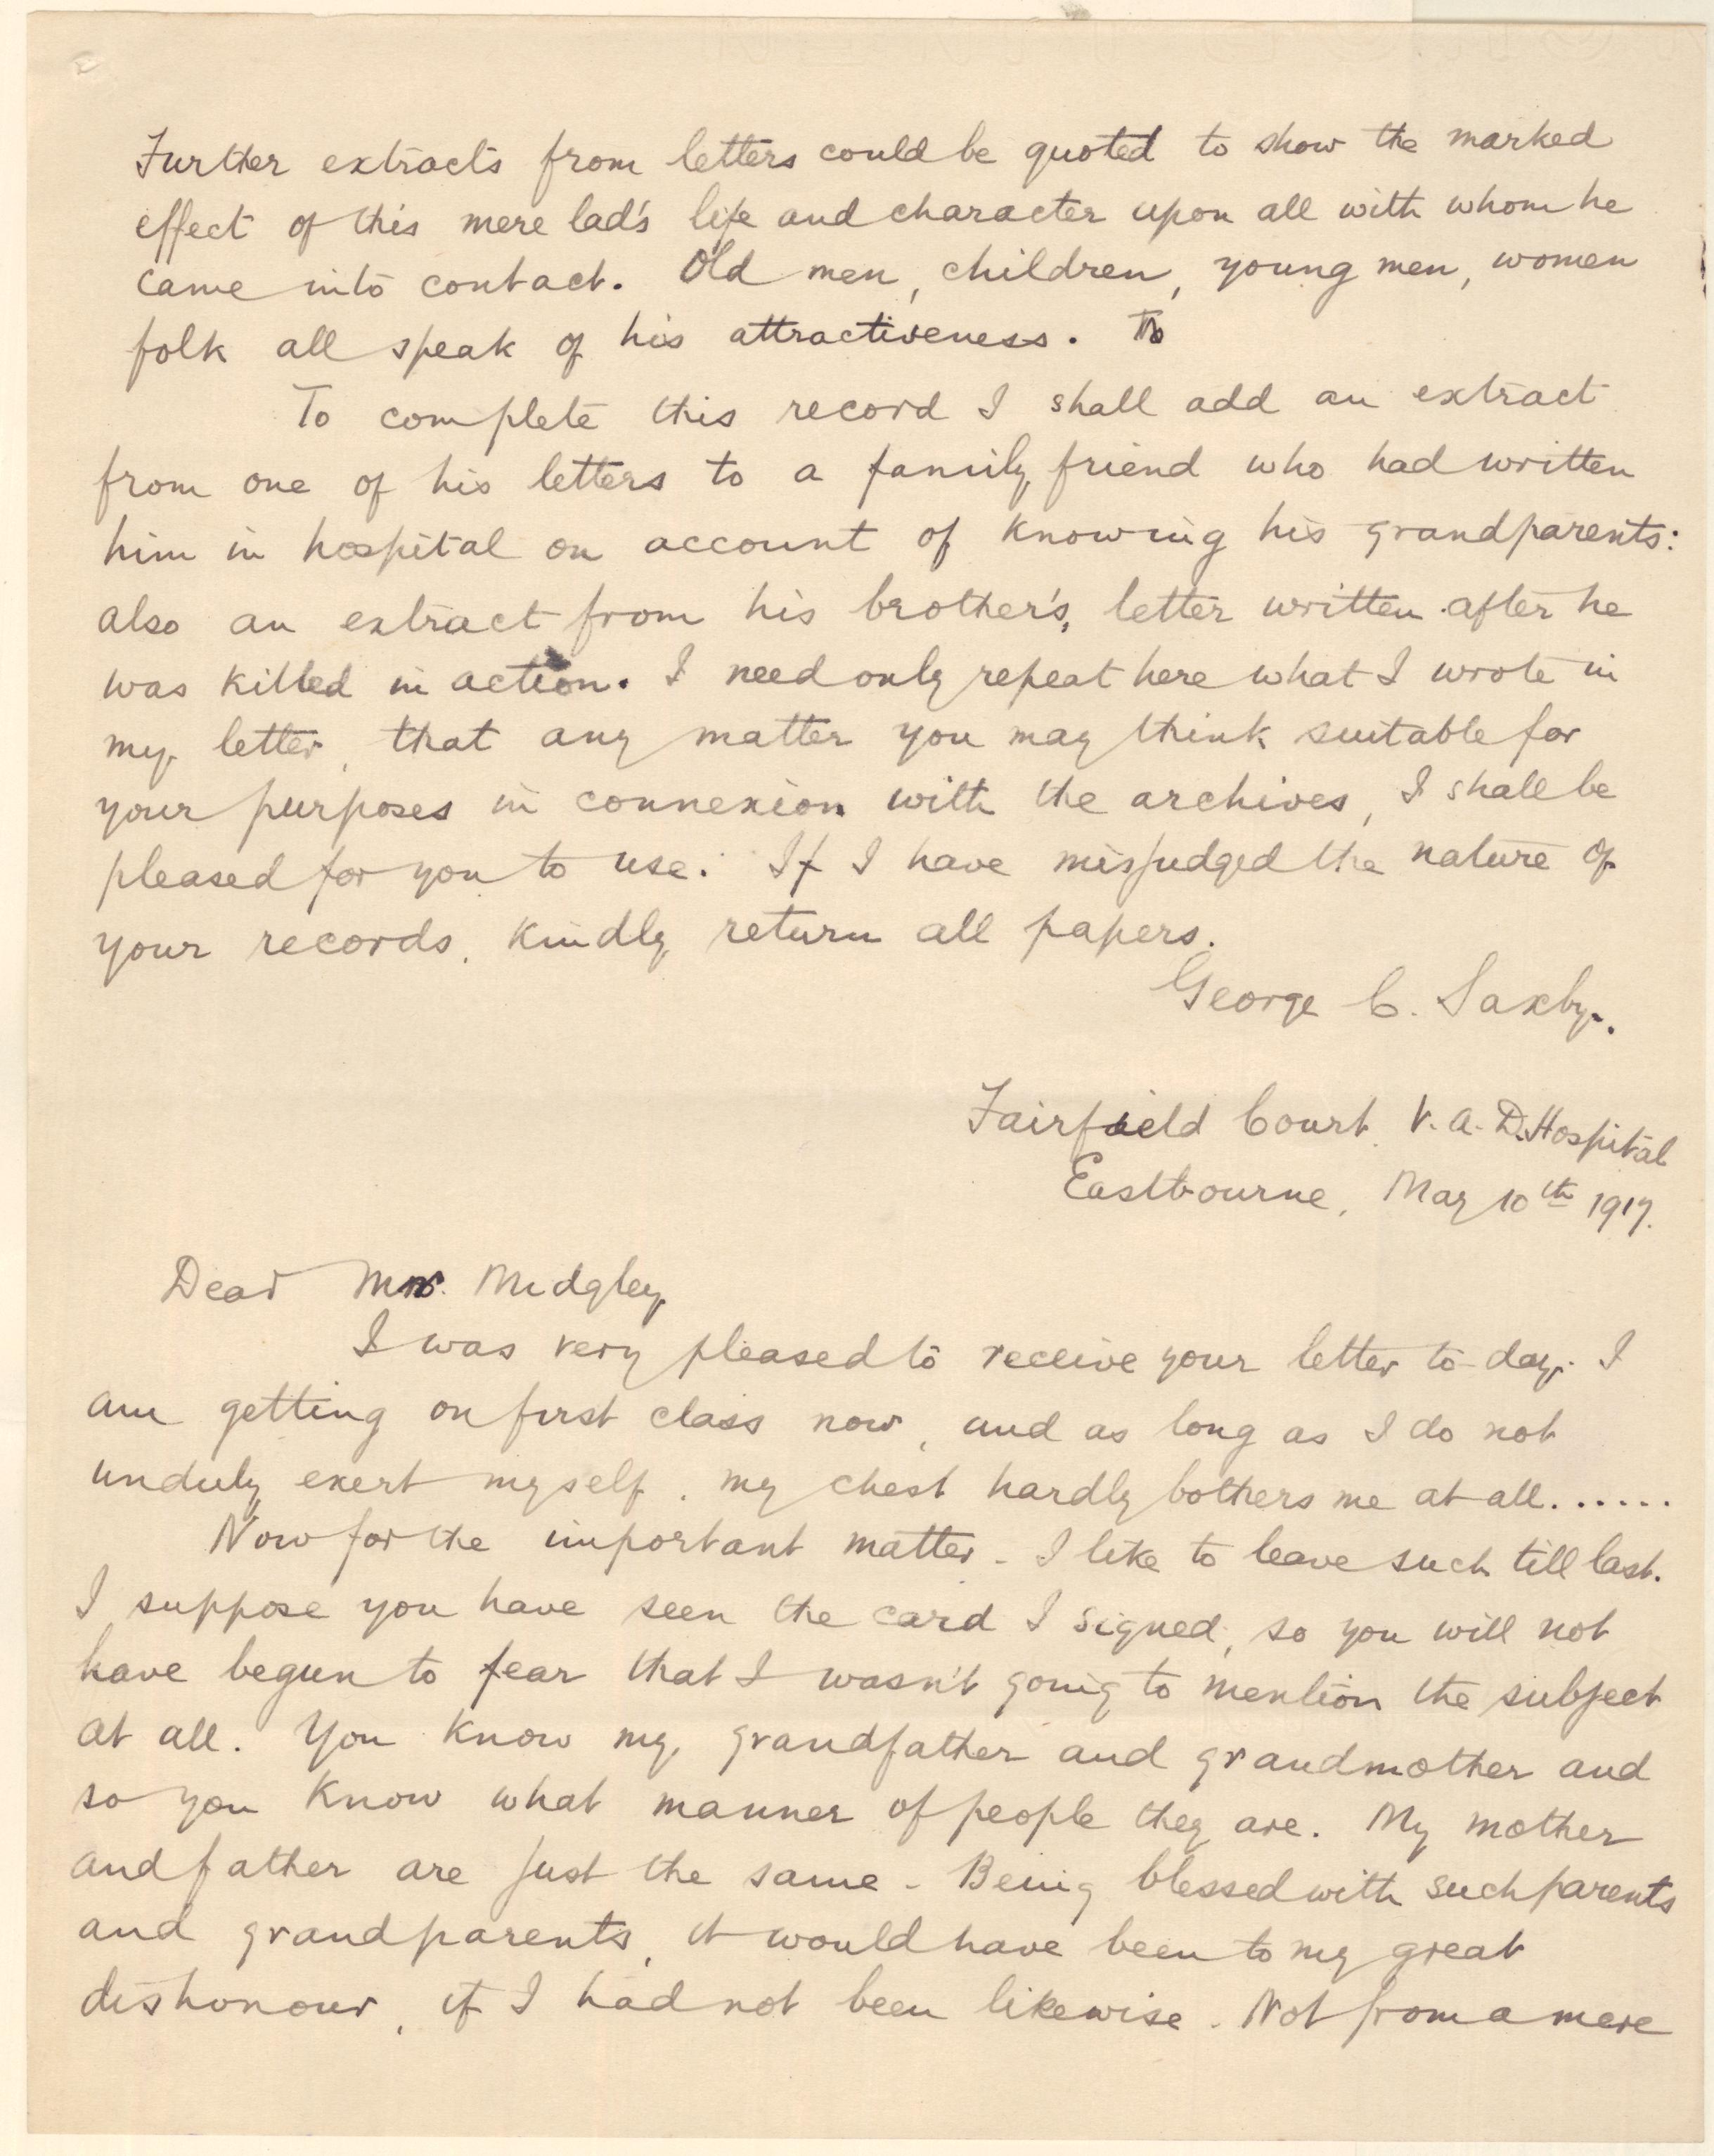 Further extracts from letters could be quoted to show the marked
effect of this mere lad's life and character upon all with whom he
came into contact. Old men, children, young men, women
folk all speak of his attractiveness. To
To complete this record I shall add an extract
from one of his letters to a family friend who had written
him in hospital on account of knowing his grandparents:
also an extract from his brother's, letter written after he
was killed in action. I need only repeat here what I wrote in
my letter, that any matter you may think suitable for
your purposes in connexion with the archives, I shall be
pleased for you to use. If I have misjudged the nature of
your records, kindly return all papers.
George C. Saxby.
Fairfield Court. V.A.D. Hospital
Eastbourne, May 10th 1917.
Dear Mrs. Midgley
I was very pleased to receive your letter to-day. I
am getting on first class now, and as long as I do not
unduly exert myself, my chest hardly bothers me at all......
Now for the important matter - I like to leave such till last.
I suppose you have seen the card I signed, so you will not
have begun to fear that I wasn't going to mention the subject
at all. You know my grandfather and grandmother and
so you know what manner of people they are. My mother
and father are just the same - Being blessed with such parents
and grandparents, it would have been to my great
dishonour, if I had not been likewise. Not from a mere